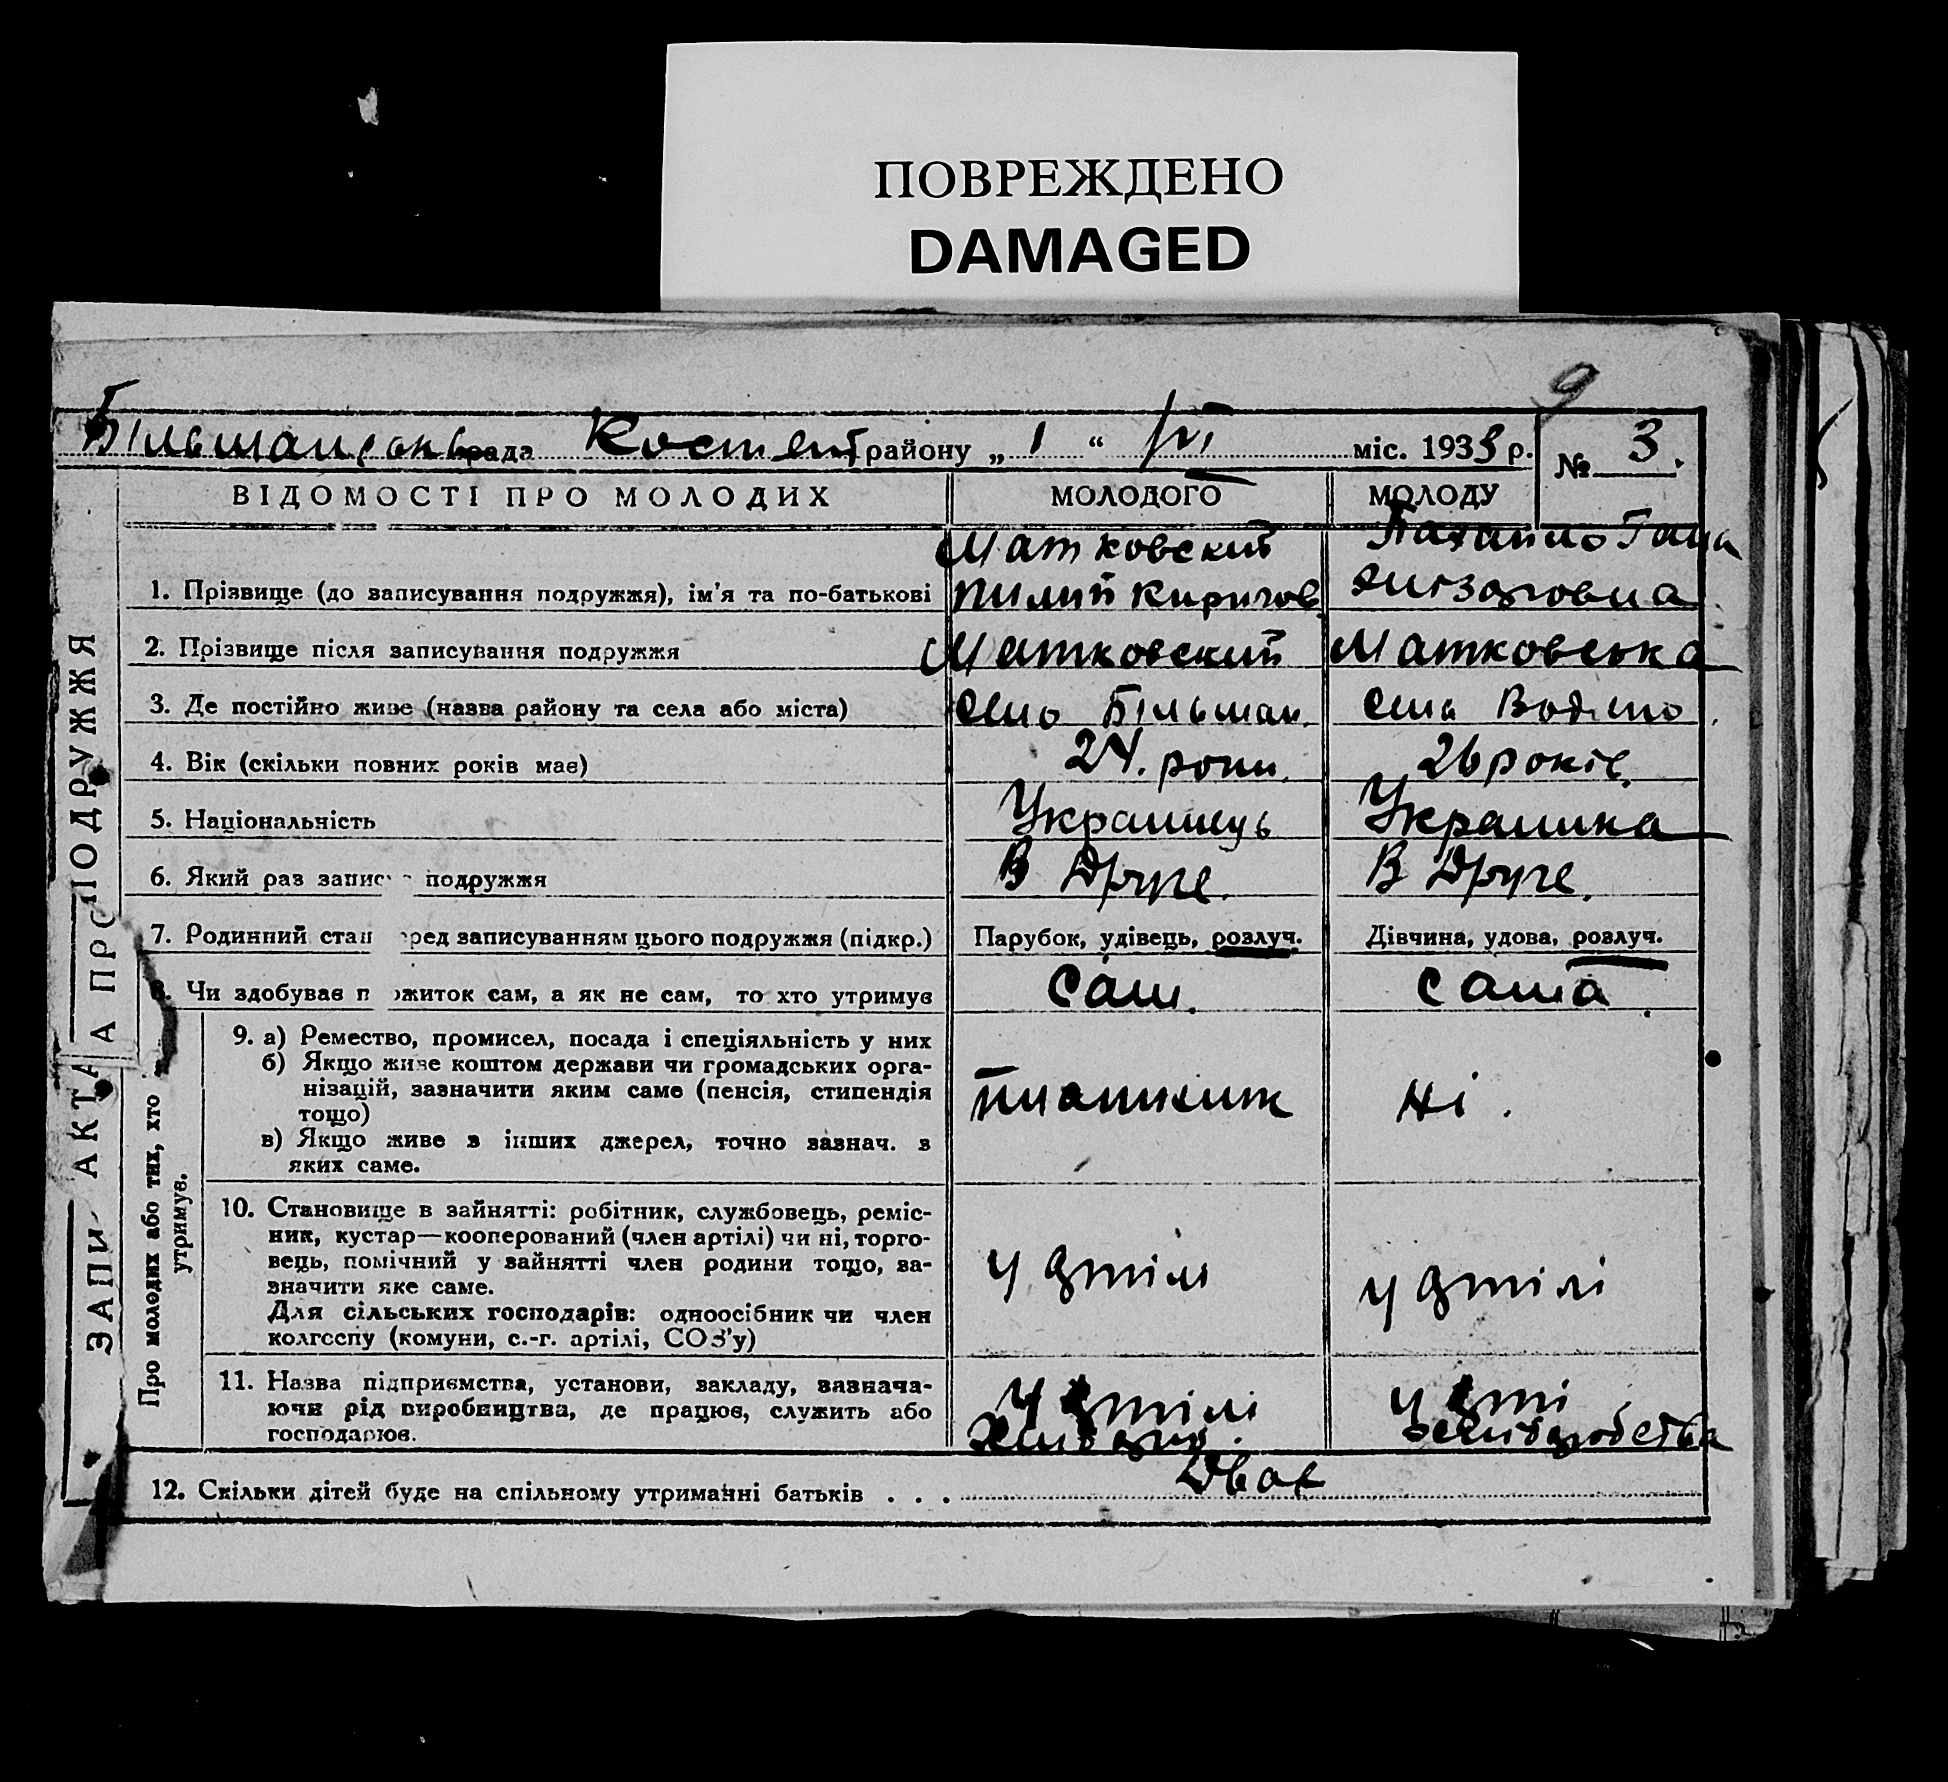 ПОВРЕЖДЕНО
DAMAGED
9
Більшанська рада Костянт району „ 1 “ III міс. 1933 р. № 3.
ВІДОМОСТІ ПРО МОЛОДИХ МОЛОДОГО МОЛОДУ
Матковский Гана
1. Прізвище (до записування подружжя), ім’я та по-батькові Пилип Киричов
2. Прізвище після записування подружжя Матковский Матковська
3. Де постійно живе (назва району та села або міста) село Більшан. село Водяно
4. Вік (скільки повних років має) 24. роки. 26 років.
5. Національність Украинець Украинка
6. Який раз запису подружжя В Друге. В Друге.
7. Родинний стан еред записуванням цього подружжя (підкр.) Парубок, удівець, розлуч. Дівчина, удова, розлуч.
8. Чи здобуває п ожиток сам, а як не сам, то хто утримує Сам. сама
9. а) Ремество, промисел, посада і спеціяльність у них
б) Якщо живе коштом держави чи громадських орга-
нізацій, зазначити яким саме (пенсія, стипендія
тощо)
в) Якщо живе з інших джерел, точно зазнач. з
яких саме.
ні.
10. Становище в зайнятті: робітник, службовець, реміс-
ник, кустар—кооперований (член артілі) чи ні, торго-
вець, помічний у зайнятті член родини тощо, за-
значити яке саме.
Для сільських господарів: одноосібник чи член
колгоспу (комуни, с.-г. артілі, СОЗ’у)
у артілі у артілі
11. Назва підприємства, установи, закладу, зазнача-
ючи рід виробництва, де працює, служить або
господарює.
у артілі у арті
12. Скільки дітей буде на спільному утриманні батьків . . . Двое
ЗАПИ АКТА ПРО ПОДРУЖЖЯ
Про молодих або тих, хто
утримує.